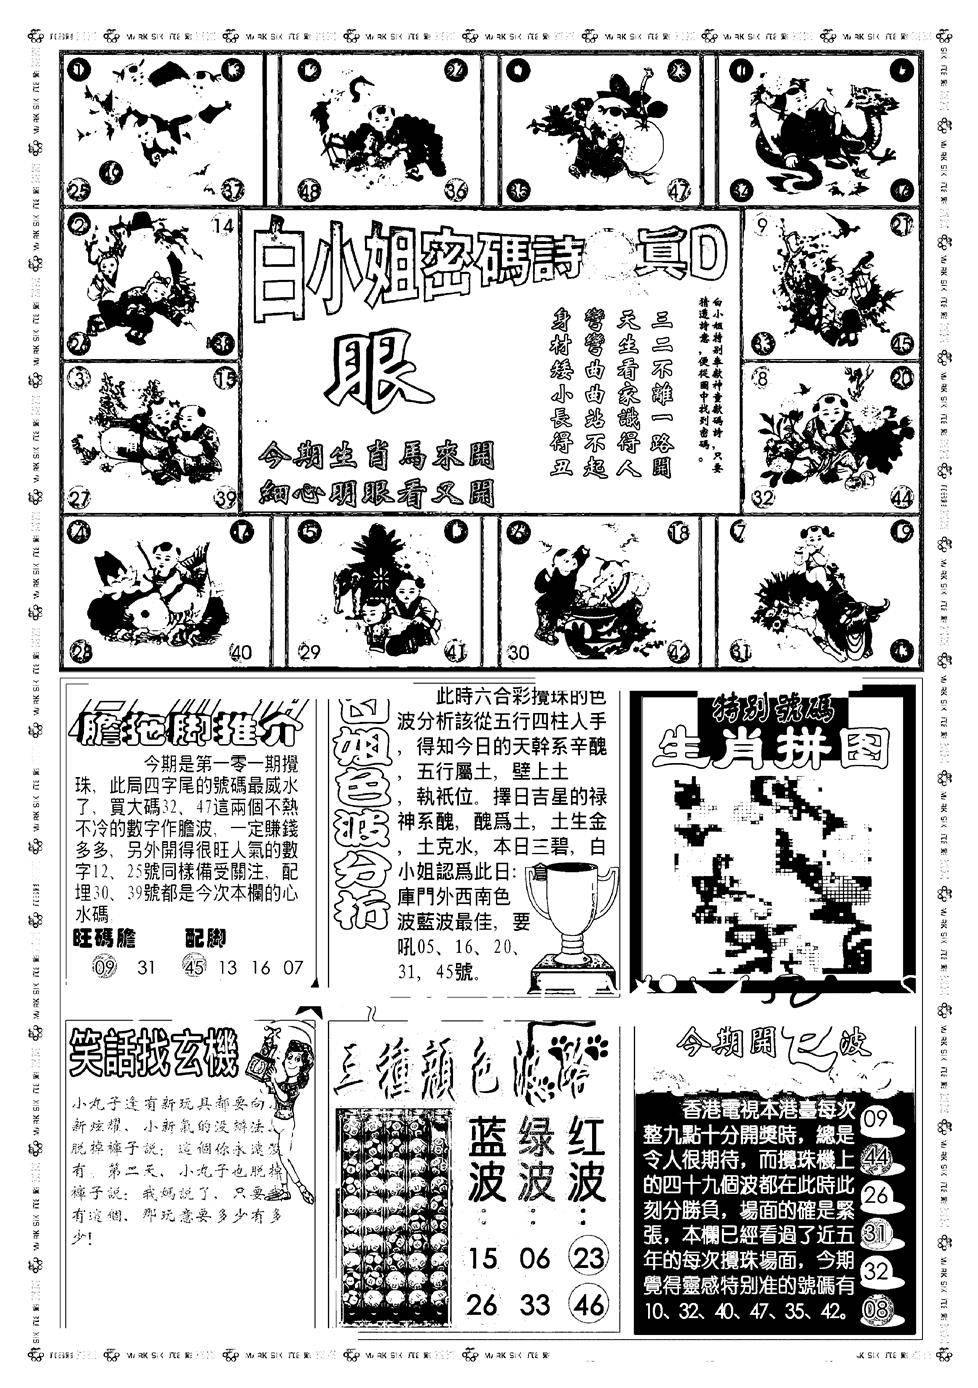 25 37 48 36 35 47
14 9 21
白小姐密碼詩 真D
眼
白小姐特别奉獻神童獻碼詩,只要
猜透詩意,便從圖中找到密碼。
三二不離一路開
天生看家識得人
彎彎曲曲站不起
身材矮小長得丑
今期生肖馬來開
細心明眼看又開
38 33 45
3 15 8 20
27 39 32 44
18 7 19
28 40 29 41 30 42 31
膽拖脚推介
今期是第一零一期攪
珠，此局四字尾的號碼最威水
了，買大碼32、47這兩個不熱
不冷的數字作膽波，一定賺錢
多多，另外開得很旺人氣的數
字12、25號同樣備受關注，配
埋30、39號都是今次本欄的心
水碼
旺碼膽 配脚
09 31 45 13 16 07
白姐色波分析
此時六合彩攪珠的色
波分析該從五行四柱人手
，得知今日的天幹系辛醜
，五行屬土，壁上土
，執衹位。擇日吉星的禄
神系醜，醜爲土，土生金
，土克水，本日三碧，白
小姐認爲此日：倉
庫門外西南色
波藍波最佳，要
吼05、16、20、
31、45號。
特别號碼
生肖拼图
笑話找玄機
小丸子逢有新玩具都要向
新炫耀、小新氣的没辦法、
脱掉褲子説：這個你永遠没
有、第二天、小丸子也脱掉
褲子説：我媽説了、只要
有這個、那玩意要多少有多
少!
三種顔色
蓝波： 绿波： 红波：
15 06 23
26 33 46
今期開 波
香港電視本港臺每次
整九點十分開獎時，總是
令人很期待，而攪珠機上
的四十九個波都在此時此
刻分勝負，場面的確是緊
張，本欄已經看過了近五
年的每次攪珠場面，今期
覺得靈感特别准的號碼有
10、32、40、47、35、42。
09
44
26
31
32
08